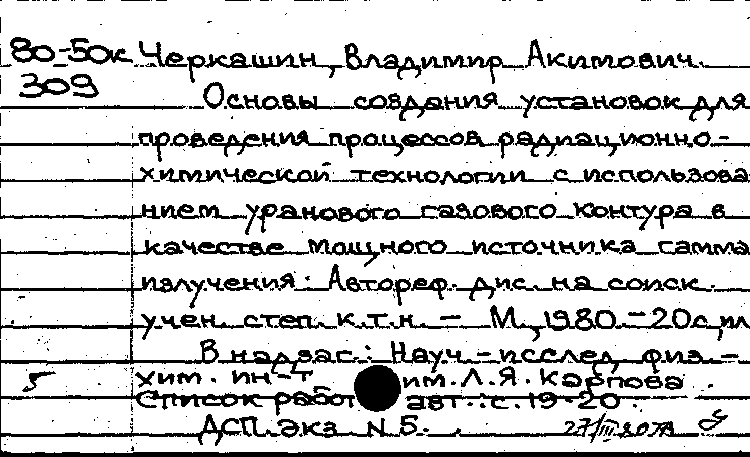 80-50к Черкашин, Владимир Акимович.
309 Основы создания установок для
проведения процессов радиационно-
химической технологии с использова
нием уранового газового контура в
качестве мощного источника гамма
излучения: Автореф. дис. на соиск.
учен. степ. к.т.н. — М., 1980. - 20 с, ил
В надзаг.: Науч.-исслед. физ.-
5 хим. ин-т им. Л.Я. Карпова.
Список работ авт.: с. 19-20.
ДСП. Экз N 5.
27/III